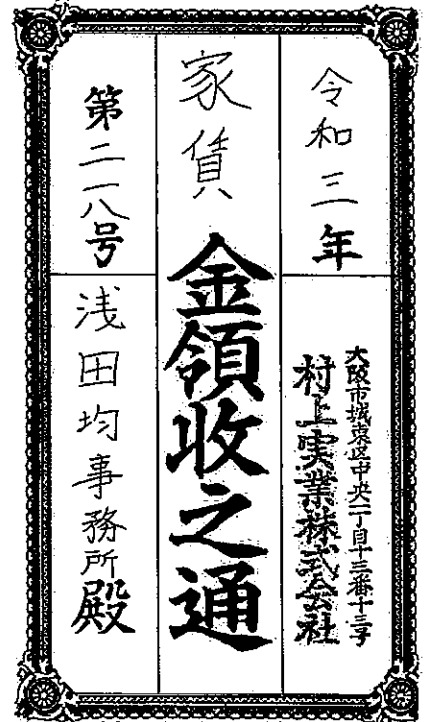 令和三年
大阪市城東区中央一丁目十三番十三号
村上実業株式会社
家賃金領收之通
第二一八号
浅田均事務所殿